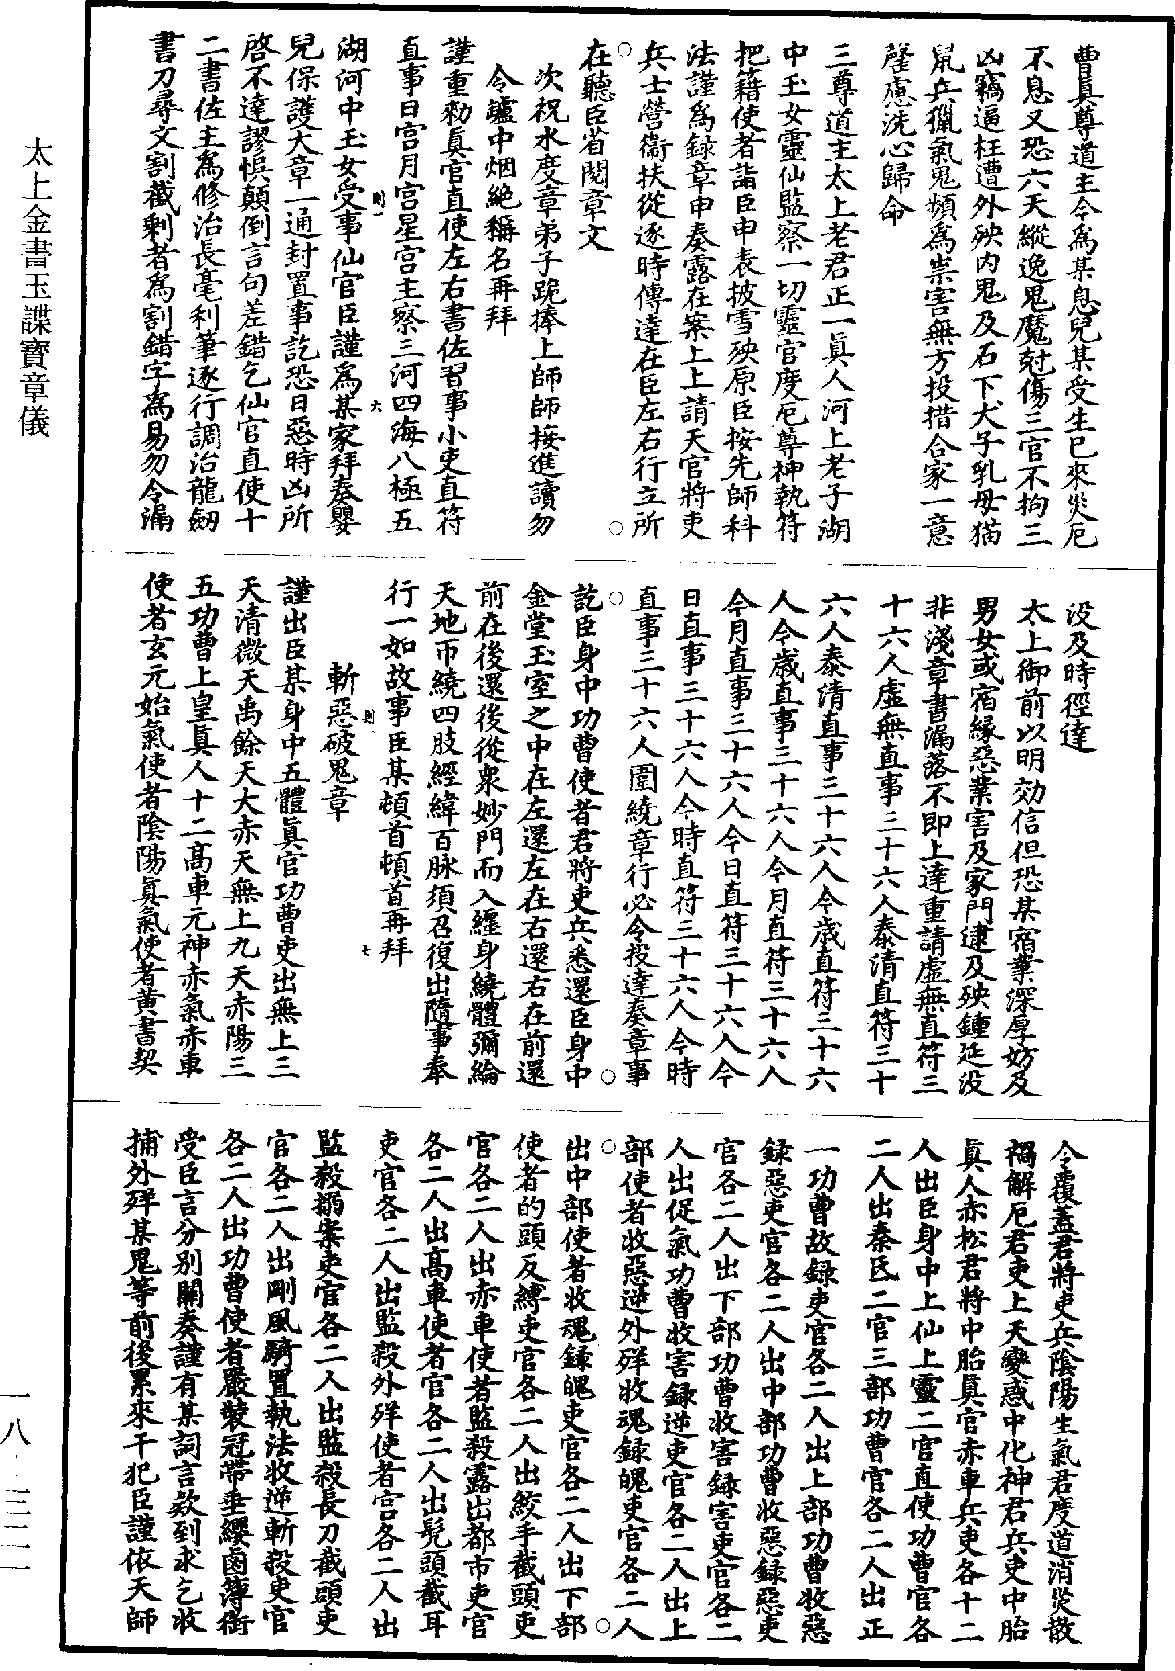 曹真尊道主令爲某息兒某受生已來災厄
不息又恐六天縱逸鬼魔尅傷三官不拘三
凶竊逼枉遭外殃内鬼及石下犬子乳母猫
鼠兵獵氣鬼頻爲祟害無方投措合家一意
罄慮洗心歸命
三尊道主太上老君正一真人河上老子湖
中玉女靈仙監察一切靈官度厄尊神執符
把籍使者詣臣申表披雪殃原臣按先師科
法謹爲録章申奏露在案上上請天官將吏
兵士營衞扶從逐時傳達在臣左右行立所
在聽臣省閱章文
次祝水度章弟子跪捧上師師接進讀勿
令罏中烟絶稱名再拜
謹重勑真官直使左右書佐習事小吏直符
直事日宫月宫星宫主察三河四海八極五
湖河中玉女受事仙官臣謹爲某家拜奏嬰
兒保護大章一通封置事訖恐日惡時凶所
啓不達謬悞顛倒言句差錯乞仙官直使十
二書佐主爲修治長毫利筆逐行調治龍劒
書刀尋文割截剩者爲割錯字爲易勿令漏
没及時徑達
太上御前以明効信但恐某宿業深厚妨及
男女或宿緣惡業害及家門逮及殃鍾延没
非淺章書漏落不即上達重請虚無直符三
十六人虚無直事三十六人泰清直符三十
六人泰清直事三十六人今歲直符三十六
人今歲直事三十六人今月直符三十六人
今月直事三十六人今日直符三十六人今
日直事三十六人今時直符三十六人今時
直事三十六人圍繞章行必令投達奏章事
訖臣身中功曹使者君將吏兵悉還臣身中
金堂玉室之中在左還左在右還右在前還
前在後還後從衆妙門而入纒身繞體彌綸
天地帀繞四肢經緯百脉須召復出隨事奉
行一如故事臣某頓首頓首再拜
斬惡破鬼章
謹出臣某身中五體真官功曹吏出無上三
天清微天禹餘天大赤天無上九天赤陽三
五功曹上皇真人十二高車元神赤氣赤車
使者玄元始氣使者陰陽真氣使者黄書契
令覆蓋君將吏兵陰陽生氣君度道消災散
禍解厄君吏上天變惑中化神君兵吏中胎
真人赤松君將中胎真官赤車兵吏各十二
人出臣身中上仙上靈二官直使功曹官各
二人出秦氏二官三部功曹官各二人出正
一功曹故録吏官各二人出上部功曹收惡
録惡吏官各二人出中部功曹收惡録惡吏
官各二人出下部功曹收害録害吏官各二
人出促氣功曹收害録逆吏官各二人出上
部使者收惡逆外殃收魂録魄吏官各二人
出中部使者收魂録魄吏官各二人出下部
使者的頭反縛吏官各二人出絞手截頭吏
官各二人出赤車使者監殺露出都市吏官
各二人出高車使者官各二人出髡頭截耳
吏官各二人出監殺外殃使者官各二人出
監殺搦案吏官各二人出監殺長刀截頭吏
官各二人出剛風騎置執法收逆斬殺吏官
各二人出功曹使者嚴裝冠帶垂纓鹵薄衞
受臣言分别關奏謹有某詞言欵到求乞收
捕外殃某鬼等前後累來干犯臣謹依天師
太上金書玉諜寶章儀
一八·三二一